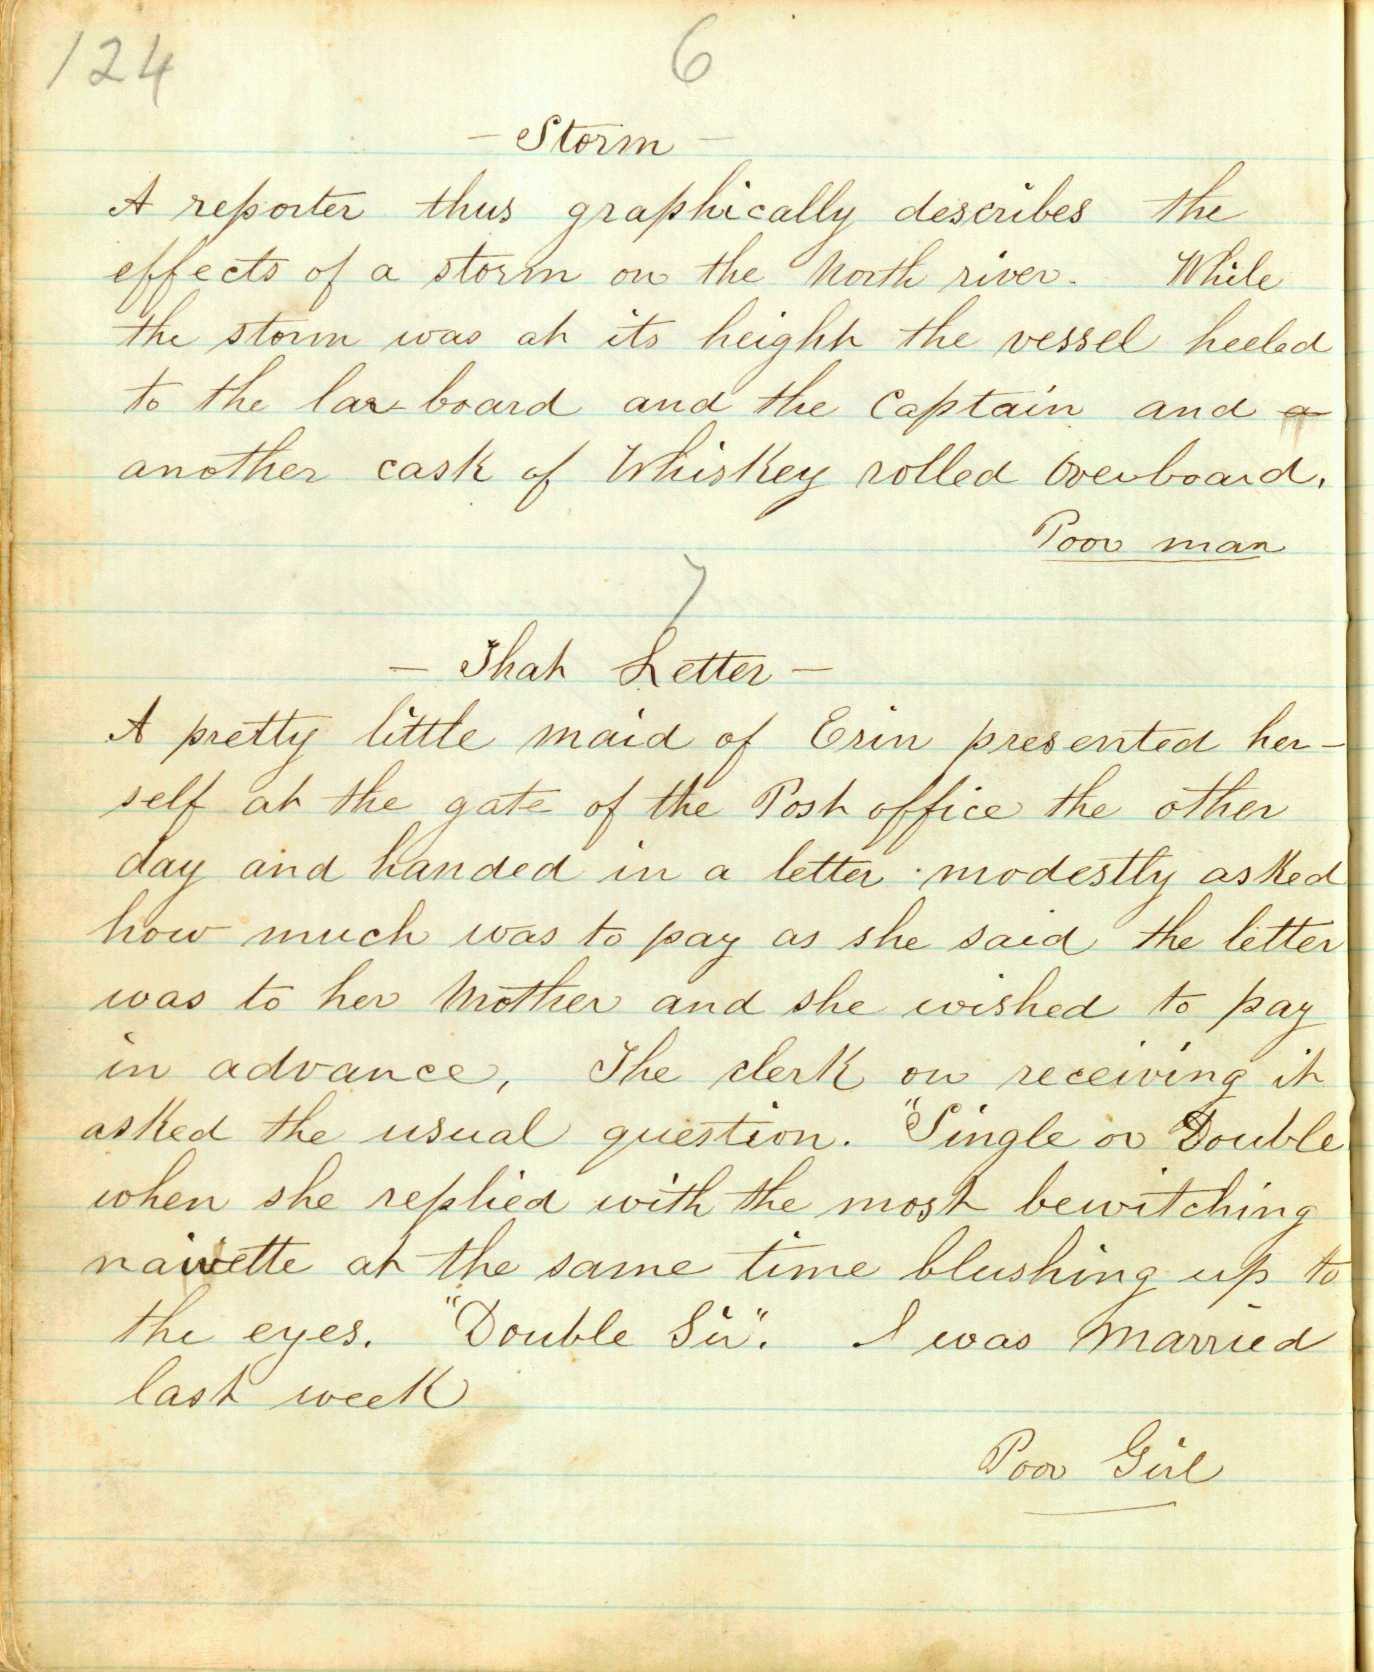 124
6
- Storm -
A reporter thus graphically describes the
effects of a storm on the North river. While
the storm was at its height the vessel heeled
to the lar-board and the Captain and a
another cask of Whiskey rolled Overboard.
Poor man
7
- That Letter -
A pretty little maid of Erin presented her-
self at the gate of the Post office the other
day and handed in a letter . modestly asked
how much was to pay as she said the letter
was to her Mother and she wished to pay
in advance, The clerk on receiving it
asked the usual question. "Single or Double
when she replied with the most bewitching
naivette at the same time blushing up to
the eyes. "Double Sir". I was Married
last week
Poor Girl